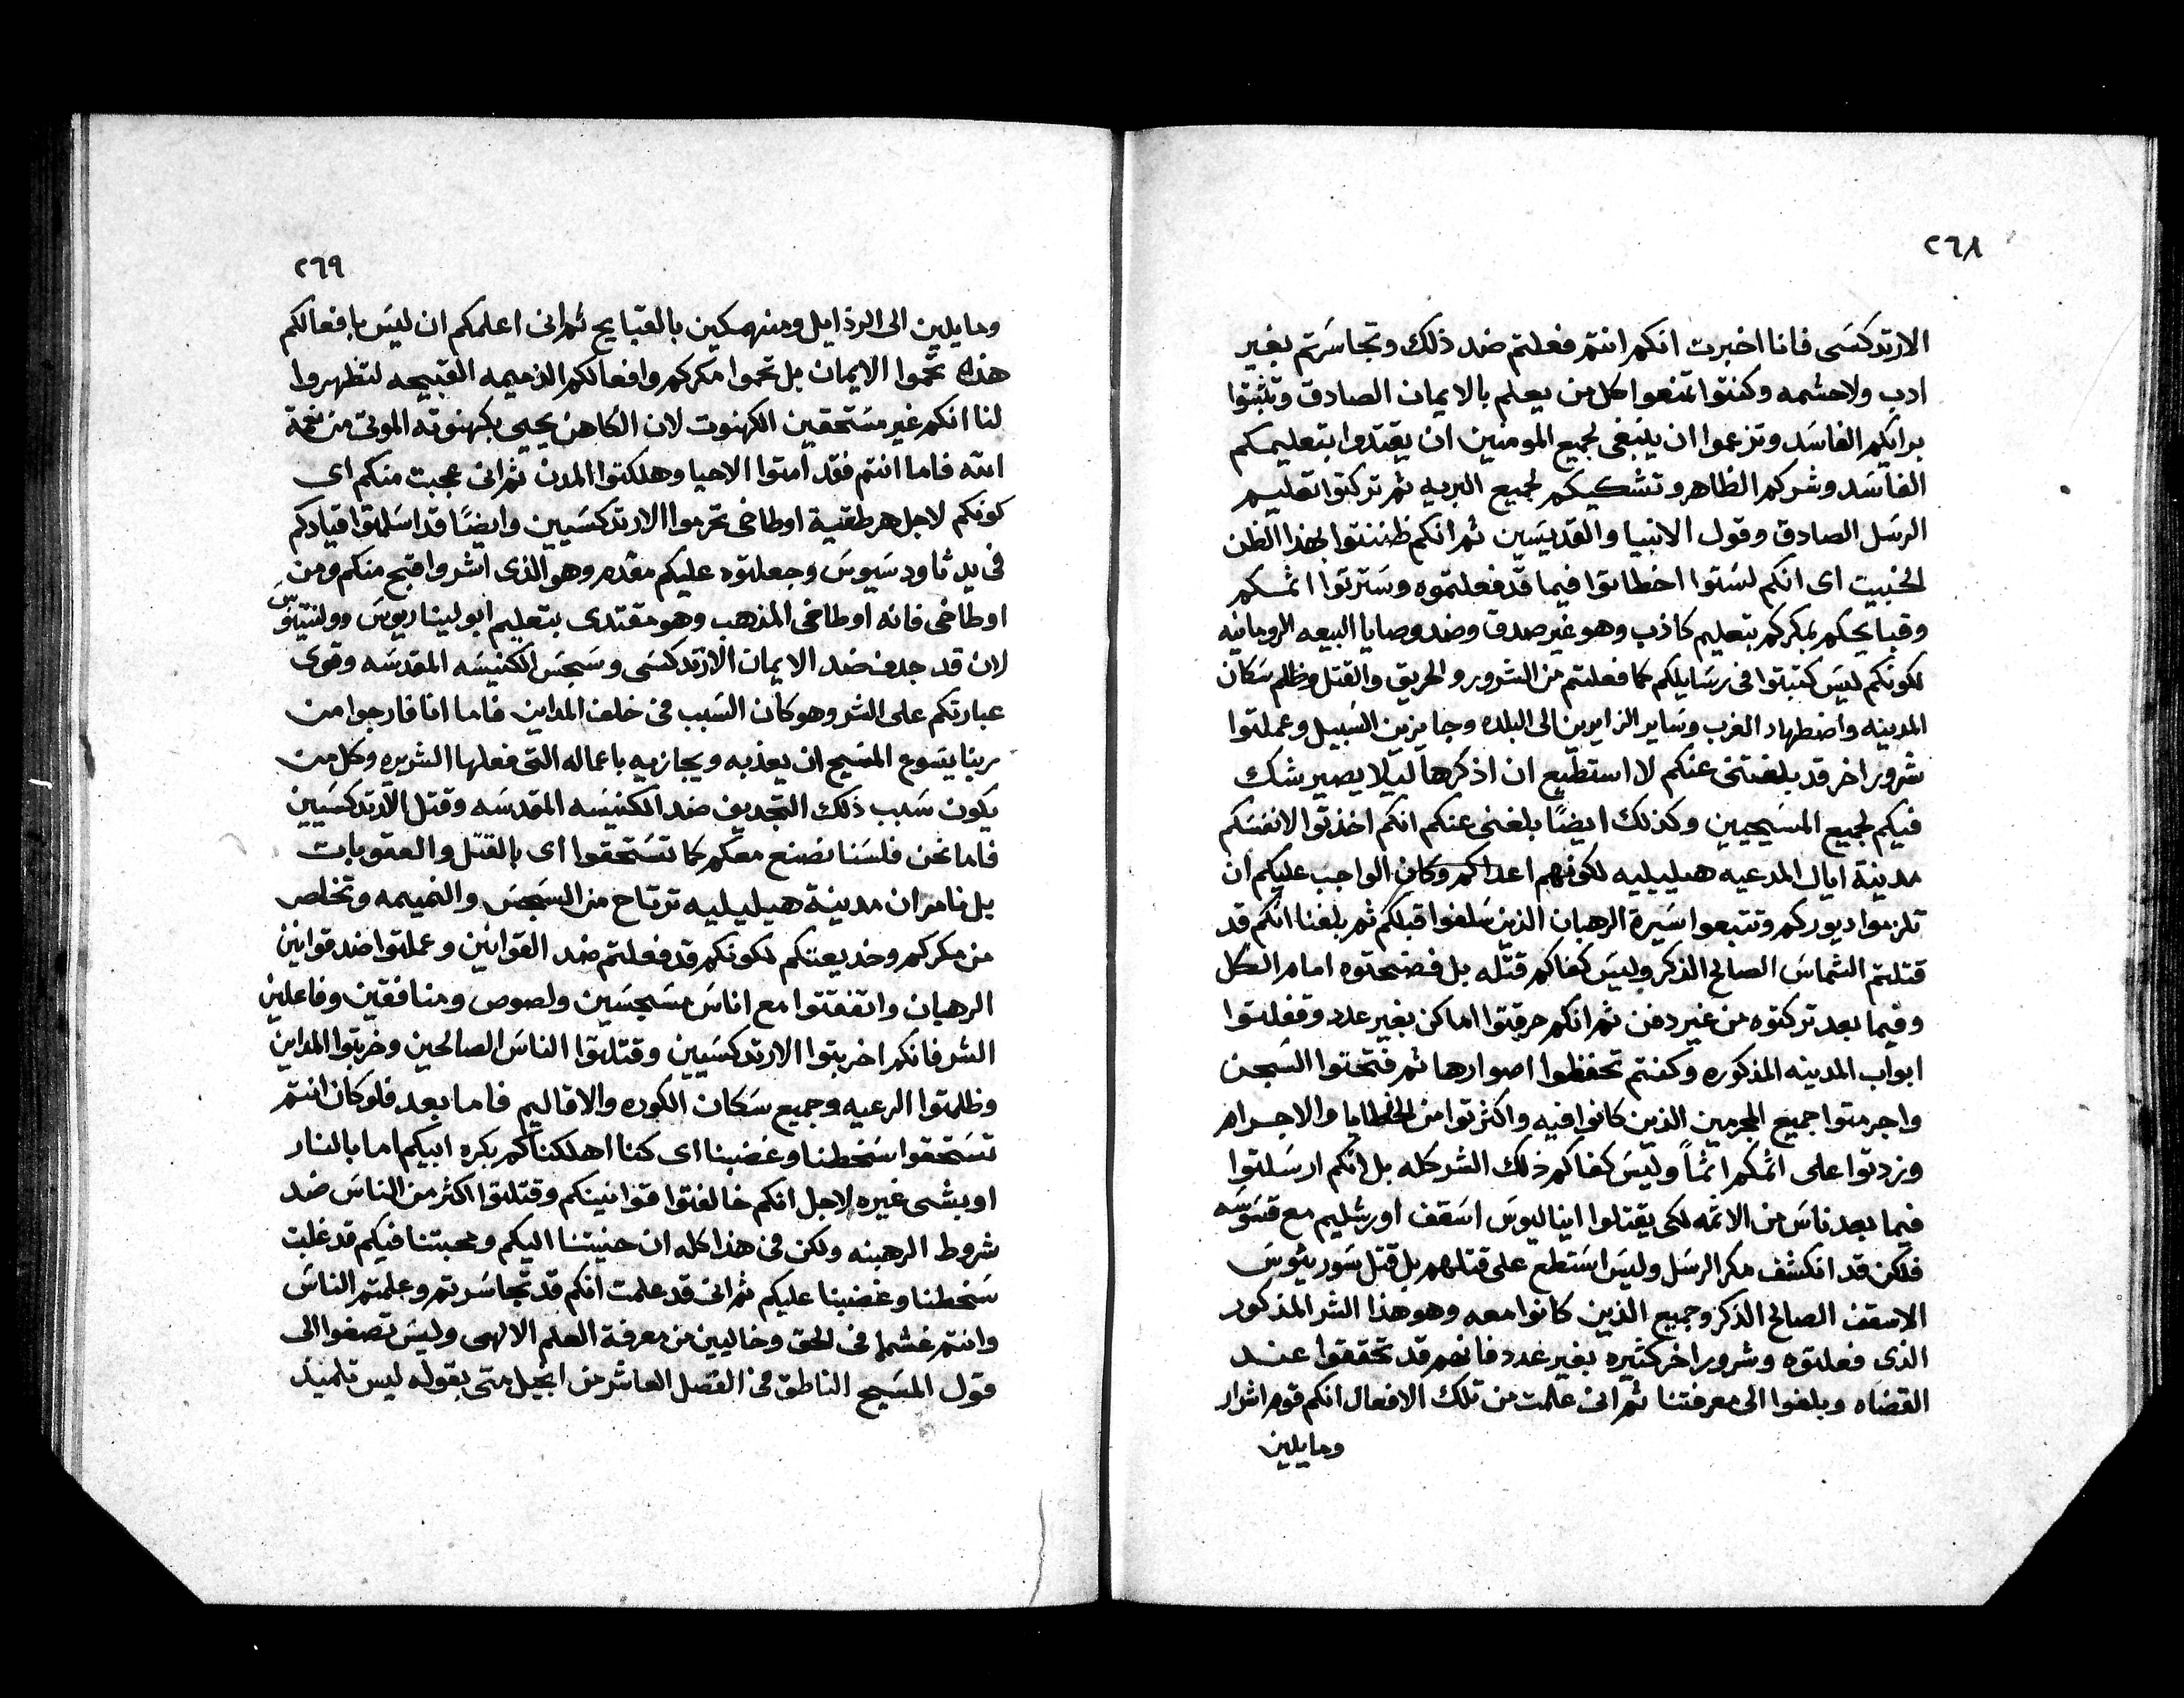 ٢٦٨
الارتدكسى فانا اخبرت انكم انتم فعلتم ضد ذلك وتجاسرتم بغير
ادب ولاحشمه وكنتوا تمنعوا كل من يعلم بالايمان الصادق وتثبتوا
برايكم الفاسد وتزعموا ان ينبغى لجميع المومنين ان يقتدوا بتعليمكم
الفاسد وشركم الظاهر وتشكيكم لجميع البريه ثم تركتوا تعليم
الرسل الصادق وقول الانبيا والقديسين ثم انكم ظننتوا بهذا الظن
الخبيت اى انكم لستوا اخطاتوا فيما قد فعلتموه وسترتوا اثمكم
وقبايحكم بمكركم بتعليم كاذب وهو غير صدق وضد وصايا البيعه الرومانيه
لكونكم ليس كتبتوا فى رسايلكم كما فعلتم من الشرور والحريق والقتل وظلم سكان
المدينه واضطهاد الغرب وساير الزايرين الى البلده وجايزين السبيل وعملتوا
شرور اخر قد بلغتنى عنكم لا استطيع ان اذكرها ليلا يصير شك
فيكم لجميع المسيحيين وكذلك ايضًا بلغنى عنكم انكم اخذتوا لانفسكم
مدينة ايال المدعيه هيليليه لكونهم اعداكم وكان الواجب عليكم ان
تلزموا ديوركم وتتبعوا سيرة الرهبان الذين سلفوا قبلكم ثم بلغنا انكم قد
قتلتم الشماس الصالح الذكر وليس كفاكم قتله بل فضحتوه امام الكل
وفيما بعد تركتوه من غير دفن ثم انكم حرقتوا اماكن بغير عدد وقفلتوا
ابواب المدينه المذكوره وكنتم تحفظوا اصوارها ثم فتحتوا السجن
واجرمتوا جميع المجرمين الذين كانوا فيه واكثرتوا من الخطايا والاجرام
وزدتوا على اثمكم اثمًا وليس كفاكم ذلك الشر كله بل انكم ارسلتوا
فيما بعد ناس من الاثمه لكى يقتلوا ايناليوس اسقف اورشليم مع قسوسه
فلكن قد انكشف مكر الرسل وليس استطع على قتلهم بل قتل سوريئوس
الاسقف الصالح الذكر وجميع الذين كانوا معه وهو هذا الشر المذكور
الذى فعلتوه وشرور اخر كثيره بغير عدد فانهم قد تحققوا عند
القضاه وبلغوا الى معرفتنا ثم انى علمت من تلك الافعال انكم قوم اشرار
ومايلين
٢٦٩
ومايلين الى الرذايل ومنهمكين بالقبايح ثم انى اعلمكم ان ليس بافعالكم
هذه تحموا الايمان بل تحموا مكركم وافعالكم الذميمه القبيحه لتظهروا
لنا انكم غير مستحقين الكهنوت لان الكاهن يحيى بكهنوته الموتى من نعمة
الله فاما انتم فقد امتوا الاحيا وهلكتوا المدن ثم انى عجبت منكم اى
كونكم لاجل هرطقية اوطاخى تحرموا الارتدكسيين وايضًا قد اسلمتوا قيادكم
فى يد ثاودسيوس وجعلتوه عليكم مقدم وهو الذى اشر واقبح منكم ومن
اوطاخى فانه اوطاخى المذهب وهو مقتدى بتعليم ابوليناريوس وولنتينوس
لان قد جدف ضد الايمان الارتدكسى وسجس الكنيسه المقدسه وقوى
عبارتكم على الشر وهو كان السبب فى خلف المداين فاما انا فارجوا من
ربنا يسوع المسيح ان يعذبه ويجازيه باعماله التى فعلها الشريره وكل من
يكون سبب ذلك التجديف ضد الكنيسه المقدسه وقتل الارتدكسيين
فاما نحن فلسنا نصنع معكم كما تستحقوا اى بالقتل والعقوبات
بل نامر ان مدينة هيليليه ترتاح من السجس والنميمه وتخلص
من مكركم وخديعتكم لكونكم قد فعلتم ضد القوانين وعملتوا ضد قوانين
الرهبان واتفقتوا مع اناس مسجسين ولصوص ومنافقين وفاعلين
الشر فانكم اخربتوا الارتدكسيين وقتلتوا الناس الصالحين وخربتوا المداين
وظلمتوا الرعيه وجميع سكان الكوره والاقاليم فاما بعد فلو كان انتم
تستحقوا سخطنا وغضبنا اى كنا اهلكناكم بكره ابيكم اما بالنار
او بشى غيره لاجل انكم خالفتوا قوانينكم وقتلتوا اكثر من الناس ضد
شروط الرهبنه ولكن فى هذا كله ان حنيتنا اليكم ومحبتنا فيكم قد غلبت
سخطنا وغضبنا عليكم ثم انى قد علمت انكم قد تجاسرتم وعلمتم الناس
وانتم غشما فى الحق وخاليين من معرفة العلم الالهى وليس تصغوا الى
قول المسيح الناطق فى الفصل العاشر من انجيل متى بقوله ليس تلميذ